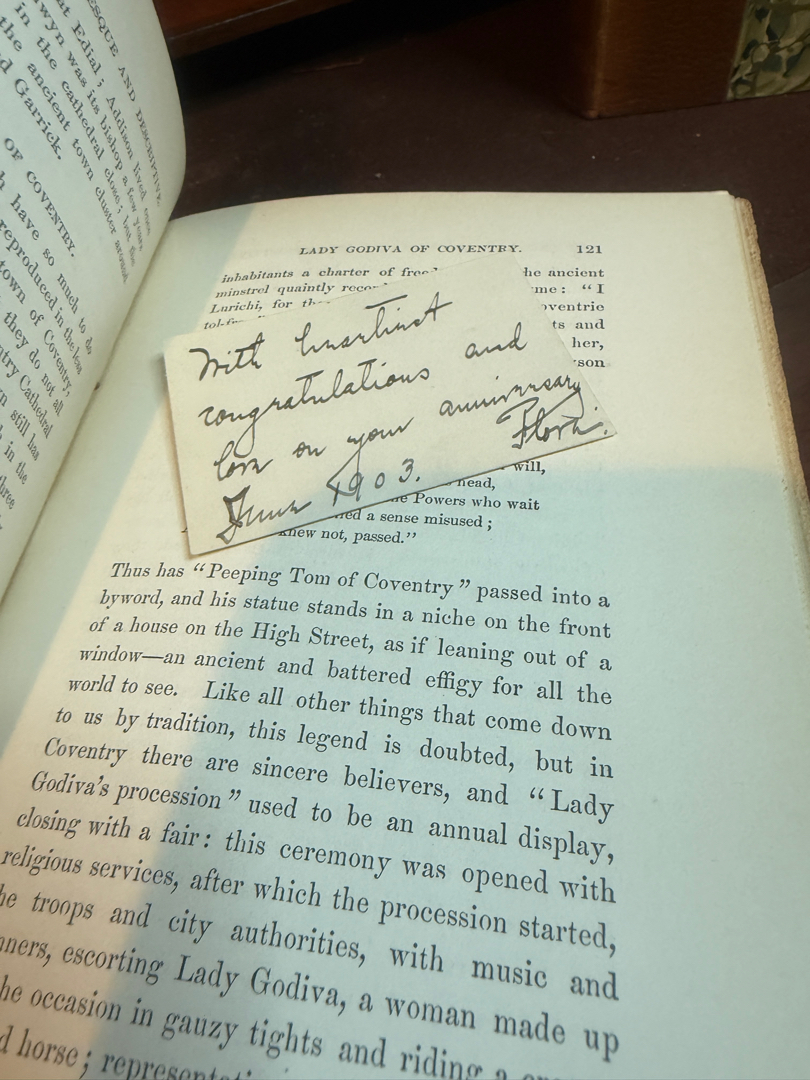 ESQUE AND DESCRIPTIVE.
Edial; Addison lived once
wyn was its bishop a few years
in the cathedral close; but the
the ancient town cluster around
Garrick.
OF COVENTRY.
have so much to do
reproduced in the less
town of Coventry,
they do not all
Cathedral
still has
in the
three
LADY GODIVA OF COVENTRY. 121
inhabitants a charter of he ancient
minstrel quaintly me: "I
Lurichi, for
ts and
her,
With heartiest
congratulations and
love on your anniversary
June 1903.
will,
head,
Powers who wait
a sense misused;
knew not, passed."
Thus has "Peeping Tom of Coventry" passed into a
byword, and his statue stands in a niche on the front
of a house on the High Street, as if leaning out of a
window—an ancient and battered effigy for all the
world to see. Like all other things that come down
to us by tradition, this legend is doubted, but in
Coventry there are sincere believers, and "Lady
Godiva's procession" used to be an annual display,
closing with a fair: this ceremony was opened with
religious services, after which the procession started,
he troops and city authorities, with music and
ners, escorting Lady Godiva, a woman made up
he occasion in gauzy tights and riding a
d horse;